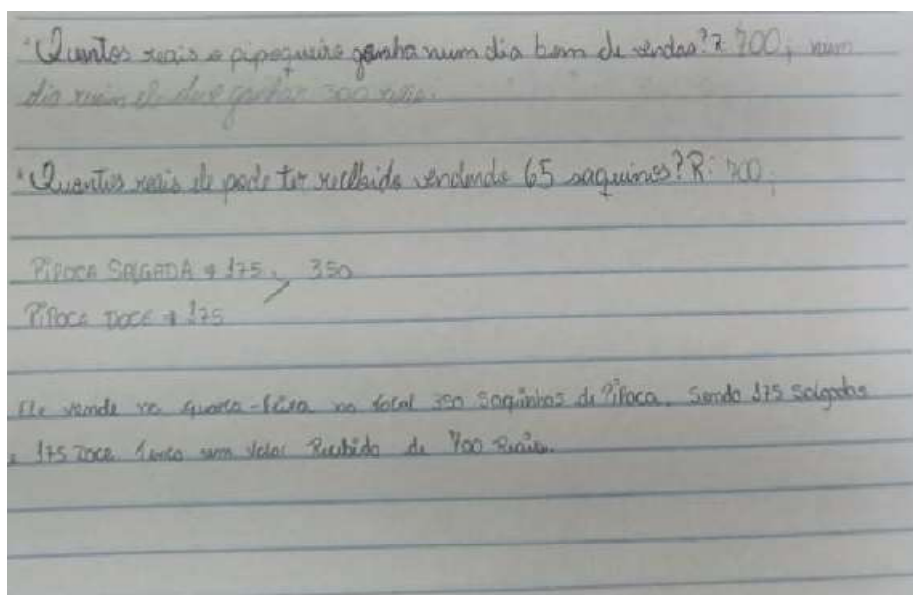 "Quantos reais o pipoqueiro ganha num dia bom de vendas? R 700; num
dia ruim ele deve ganhar 300 reais.
"Quantos reais ele pode ter recebido vendendo 65 saquinos? R: 700;
PIPOCA SALGADA → 175. 350
PIPOCA DOCE → 175
Ele vende na quarta-feira no total 350 saquinhos de Pipoca. Sendo 175 Salgadas
e 175 Doce um Valor Recebido de 700 Reais.